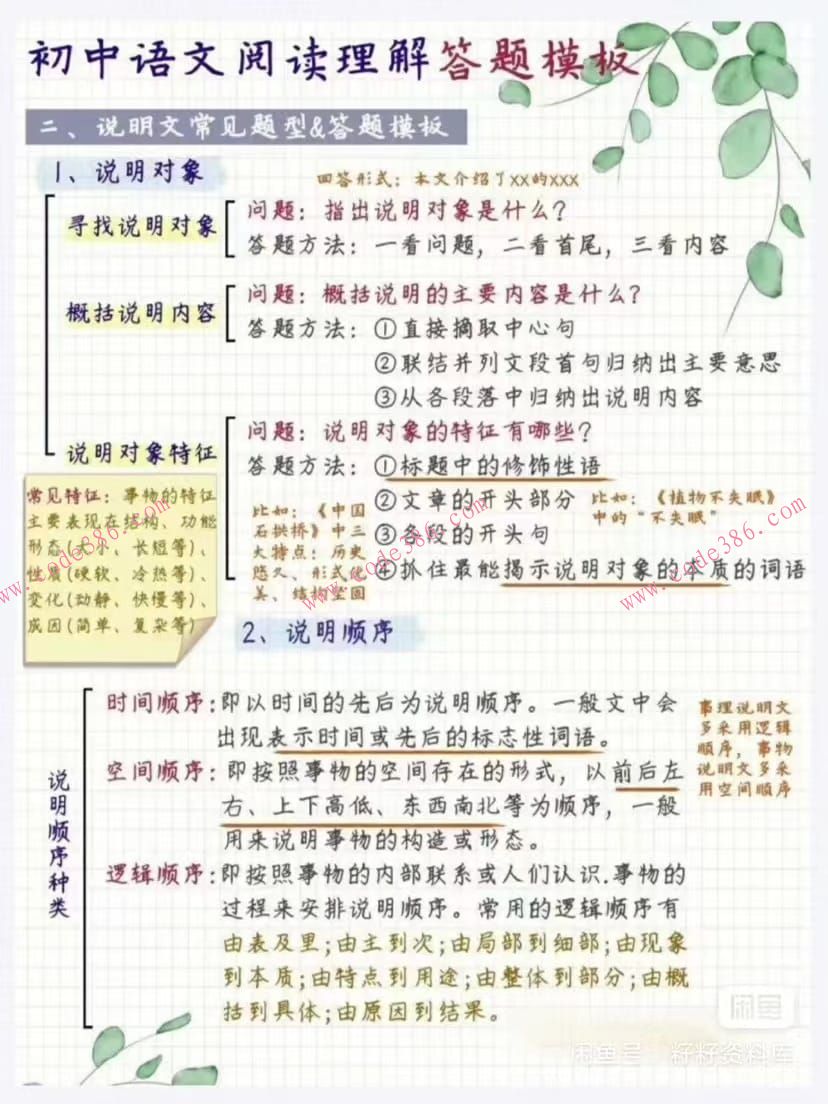 初中语文阅读理解答题模板
二、说明文常见题型&答题模板
1、说明对象
回答形式：本文介绍了XX的XXX
寻找说明对象
问题：指出说明对象是什么？
答题方法：一看问题，二看首尾，三看内容
概括说明内容
问题：概括说明的主要内容是什么？
答题方法：①直接摘取中心句
②联结并列文段首句归纳出主要意思
③从各段落中归纳出说明内容
说明对象特征
问题：说明对象的特征有哪些？
答题方法：①标题中的修饰性语
②文章的开头部分
比如：《植物不失眠》
中的“不失眠”
③各段的开头句
④抓住最能揭示说明对象的本质的词语
比如：《中国
石拱桥》中三
大特点：历史
悠久、形式优
美、结构坚固
常见特征：事物的特征
主要表现在结构、功能
形态(大小、长短等)、
性质(硬软、冷热等)、
变化(动静、快慢等)、
成因(简单、复杂等)
2、说明顺序
说明顺序种类
时间顺序:即以时间的先后为说明顺序。一般文中会
出现表示时间或先后的标志性词语。
空间顺序:即按照事物的空间存在的形式，以前后左
右、上下高低、东西南北等为顺序，一般
用来说明事物的构造或形态。
逻辑顺序:即按照事物的内部联系或人们认识.事物的
过程来安排说明顺序。常用的逻辑顺序有
由表及里;由主到次;由局部到细部;由现象
到本质;由特点到用途;由整体到部分;由概
括到具体;由原因到结果。
事理说明文
多采用逻辑
顺序，事物
说明文多采
用空间顺序
www.code386.com
www.code386.com
www.code386.com
闲鱼
闲鱼号：籽籽资料库